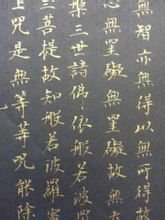 無智亦無得以無所
心無罣礙無罣礙故無
槃三世諸佛依般若波
三菩提故知般若波羅蜜
上咒是無等等咒能除